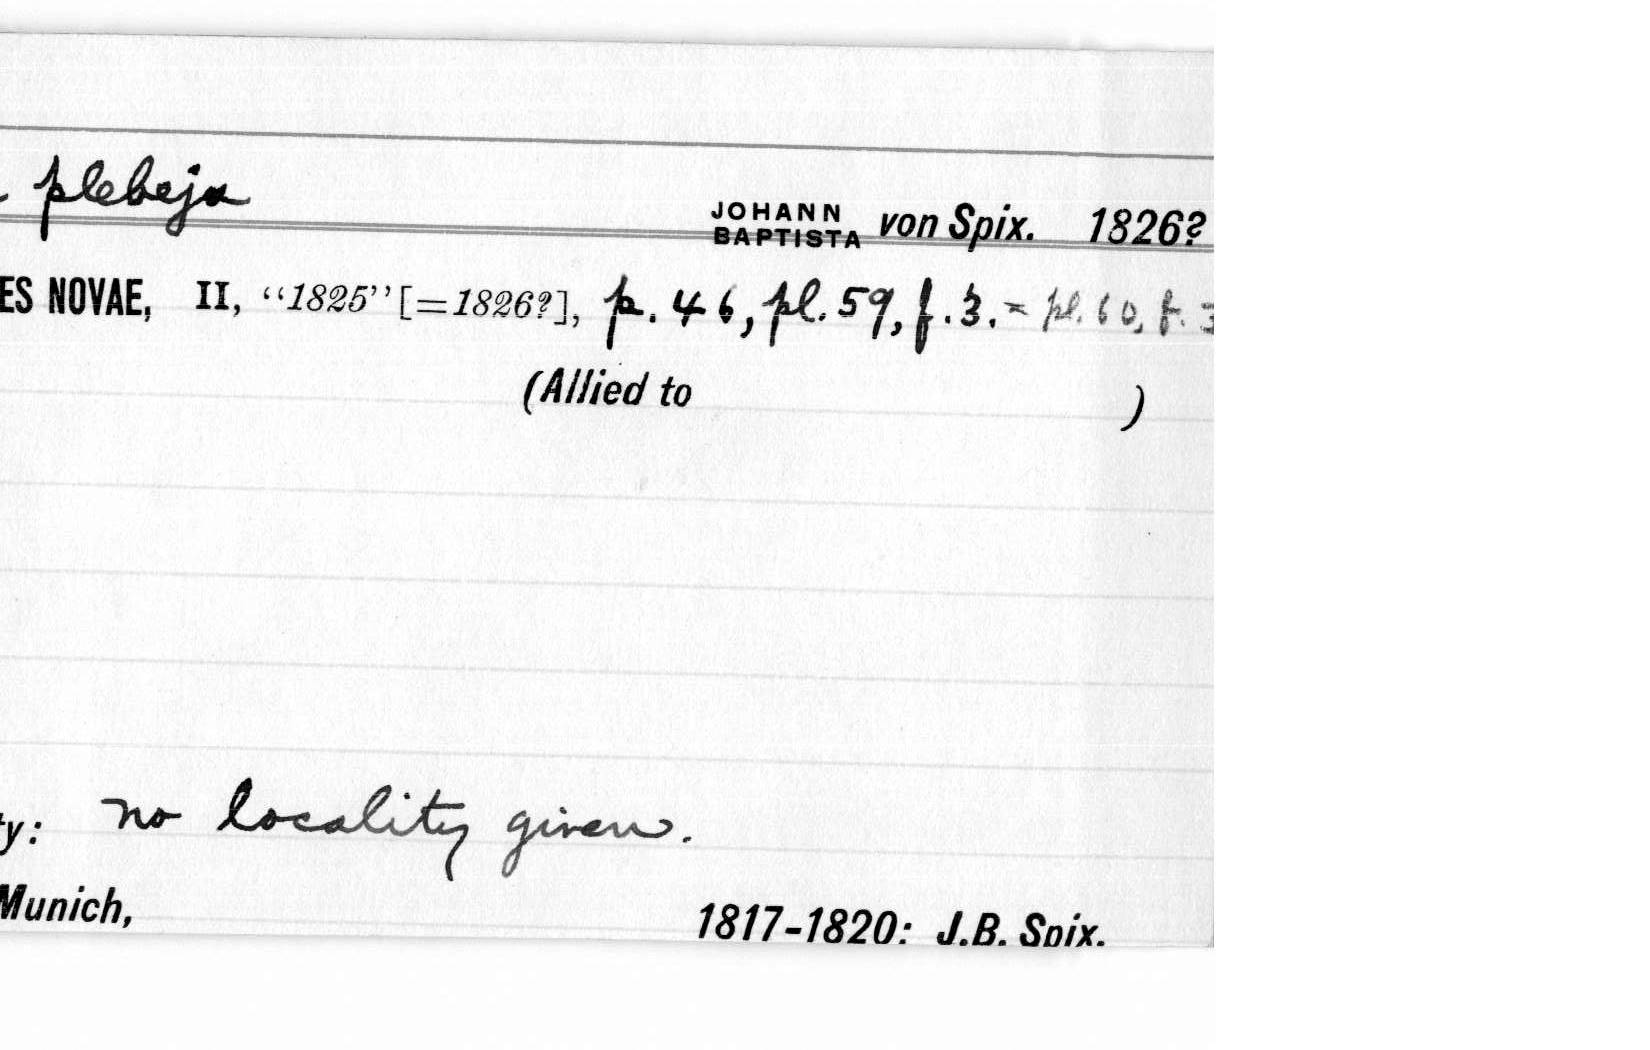 plebeja JOHANN BAPTISTA von Spix. 1826?
ES NOVAE, II, “1825” [=1826?], p. 46, pl. 59, f. 3. = pl. 60, f. 3
(Allied to )
ty: no locality given.
Munich, 1817-1820: J.B. Spix.